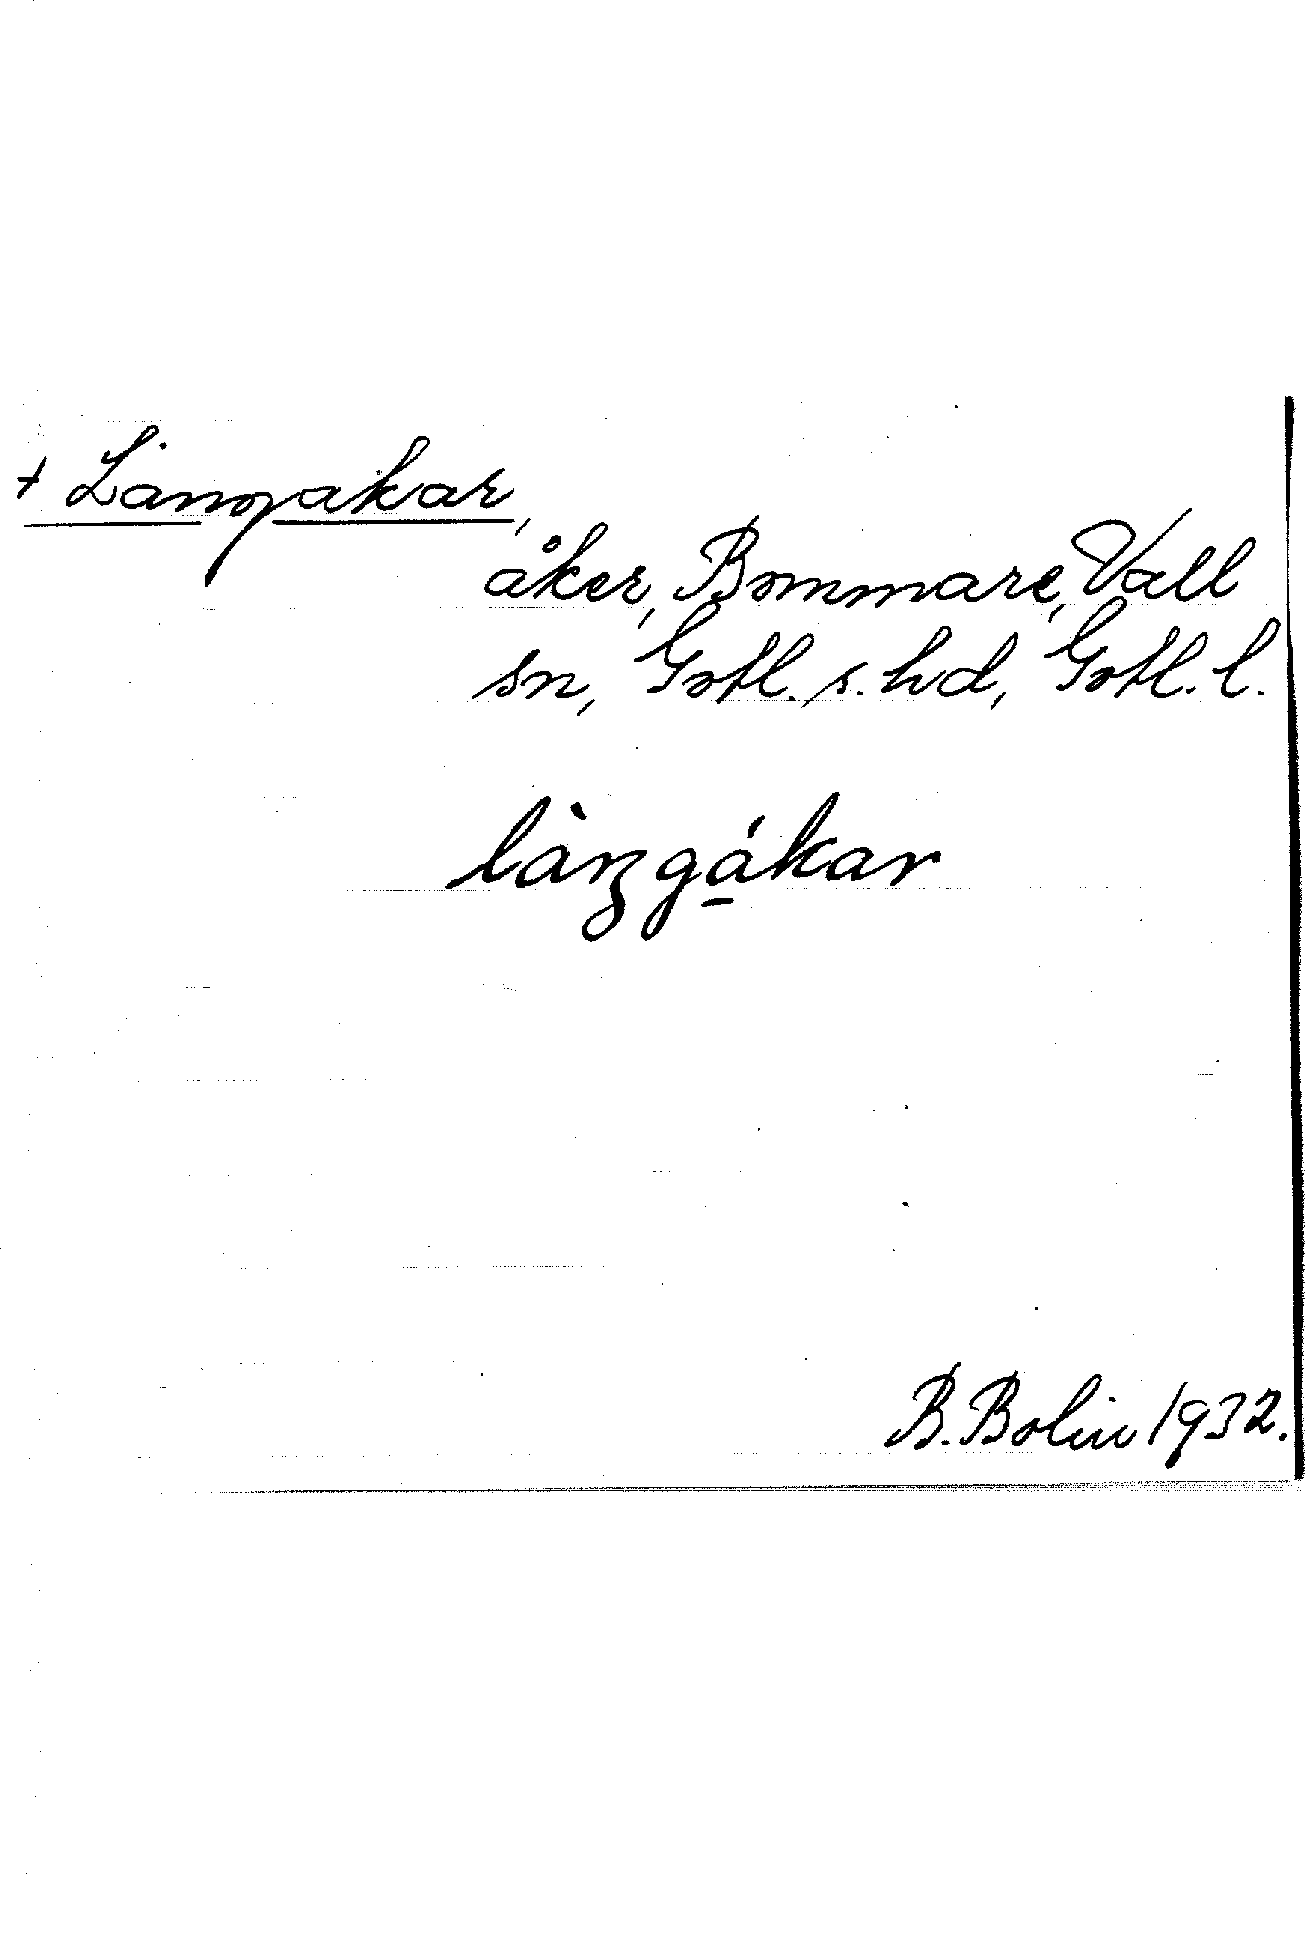 + Langakar,
åker, Bommare, Vall
sn, Gotl. s. hd, Gotl. l.
làŋgákar
B. Bolin 1932.